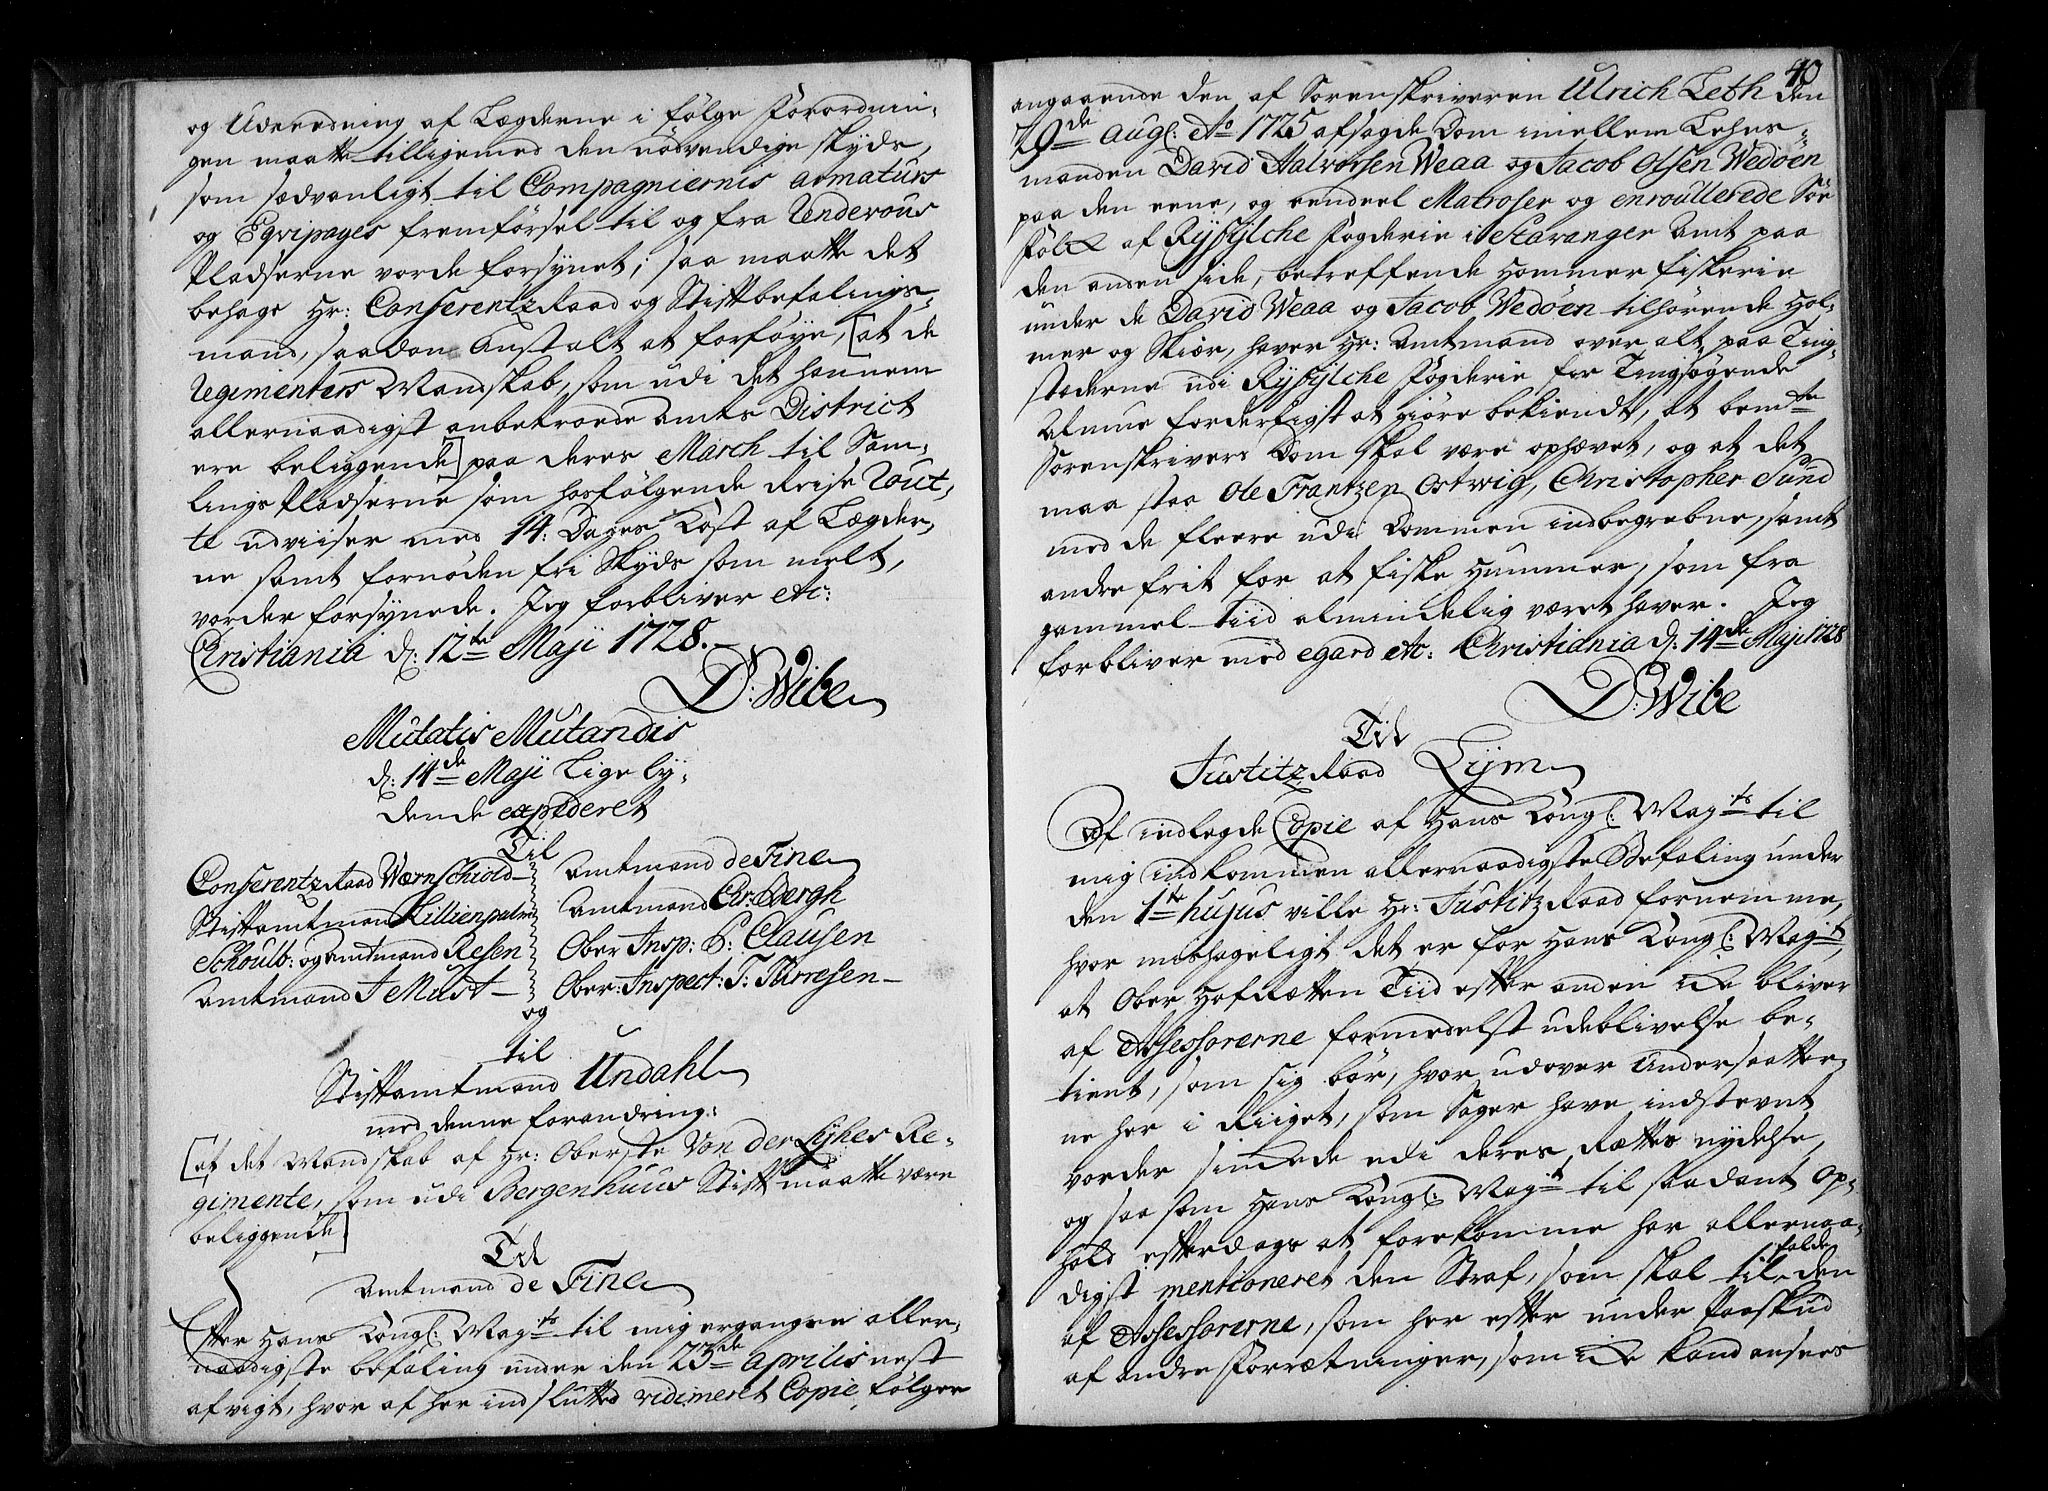 og Udreedning af Lægderne i følge Forordnin-
gen maatte tilligemed den nødvendige skyds,
som sædvanligt til Compagniernis armaturs
og Eqvipages fremførsel til og fra Rendevous
Pladserne vorde forsynet; saa maatte det
behage Hr: ConferentzRaad og Stiftbefalings-
mand, saadan Anstalt at forføye, [at de
Regimenters Mandskab, som udi det hannem
allernaadigst anbetroede Amts District
ere beliggende] paa deres March til Sam-
lings Pladserne som hosfølgende Reise Rout-
te udviiser med 14: Dages Kost af Lægder-
ne samt fornøden fri Skyds som melt,
vorder forsynede. Jeg forbliver etc:
Christiania d: 12te Maji 1728.-
D: Wibe
Mutatis Mutandis
d: 14de Maji Lige ly-
dende expederet
Til
ConferentzRaad Wernschiold-
Stiftamtmand Lillienpalm
Schoutb: og Amtmand Resen
Amtmand J Must-
Amtmand de Fine
Amtmand Chr: Bergh
Ober Insp: P: Clausen
Ober: Inspect: T: Turresen-
og
til
Stiftamtmand Undahl
med denne forandring:
[at det Mandskab af Hr: Oberste Von der Lyhes Re-
gimente, som udi Bergenhuus Stift maatte være
beliggende]
Til
Amtmand de Fine
Efter Hans Kongl: Mayts til mig ergangne aller-
naadigste befaling under den 23de Aprilis nest-
afvigt, hvor af her indsluttes vidimeret Copie, følger
40
angaaende den af Sorenskriveren Ulrich Leth den
29de Augl: Ao 1725 afsagde Dom imellem Lehns-
manden David Halvorsen Weaa og Jacob Olsen Wedøen
paa den eene, og eendeel Matroser og enroullerede Søe
Folck af Ryfylche Fogderie i Stavanger Amt paa
den anden side, betreffende Hommer fiskerie
under de David Weaa og Jacob Wedøen tilhørende Hol-
mer og Skiær, haver Hr: Amtmand over alt paa Ting-
stæderne udi Ryfylche Fogderie for Tingsøgende
Almue forderligst at giøre bekiendt, at bemte
Sorenskrivers Dom skal være ophævet, og at det
maa staa Ole Frantzen Ostwig, Christopher Sund
med de fleere udi Dommen indbegrebne, samt
andre frit for at fiske Hummer, som fra
gammel tiid almindelig været haver. Jeg
forbliver med egard etc: Christiania d: 14de Maji 1728
D: Wibe
Til
JustitzRaad Lÿm
Af indlegde Copie af Hans Kongl: Mayts til
mig indkommen allernaadigste Befaling under
den 1te hujus ville Hr: JustitzRaad fornemme,
hvor mishageligt det er for Hans Kongl: Mayt,
at Ober HofRætten Tiid efter anden icke bliver
af Assessorerne formedelst udeblivelse be-
tient, som sig bør, hvor udover Undersaatter-
ne her i Riiget, som Sager have indstevnt
vorder sinckede udi deres Rættes nydelse,
og saa som Hans Kongl: Mayt til saadant Op-
hold efterdags at forekomme har allernaa-
digst mentioneret den Straf, som skal til falde den
af Assessorerne, som her efter under Paaskud
af andre Forrætninger, som icke kand ansees